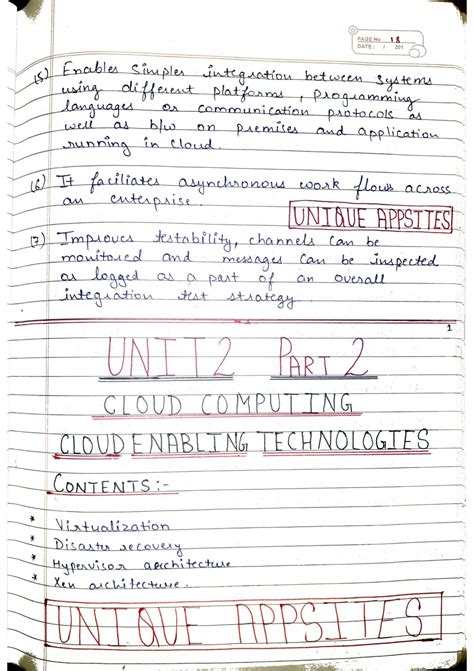 PAGE No. 18
DATE: / / 201
(5) Enables simpler integration between systems
using different platforms, programming
languages or communication protocols as
well as b/w on premises and application
running in cloud.
(6) It faciliates asynchronous work flows across
an enterprise.
UNIQUE APPSITES
(7) Improves testability, channels can be
monitored and messages can be inspected
or logged as a part of an overall
integration test strategy.
1
UNIT 2 PART 2
CLOUD COMPUTING
CLOUD ENABLING TECHNOLOGIES
CONTENTS:-
* Virtualization
* Disaster recovery
* Hypervisor architecture
* Xen architecture.
UNIQUE APPSITES